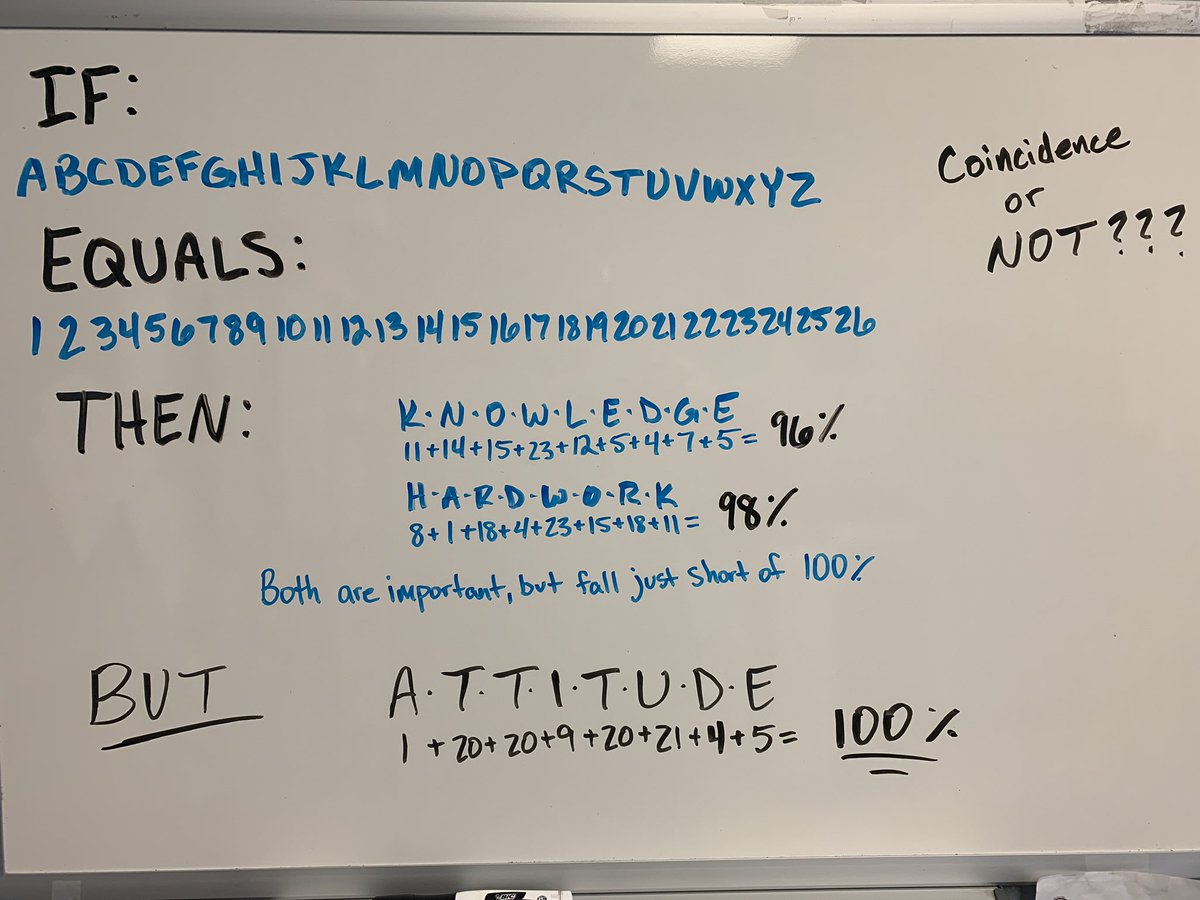 IF:
ABCDEFGHIJKLMNOPQRSTUVWXYZ
EQUALS:
1 2 3 4 5 6 7 8 9 10 11 12 13 14 15 16 17 18 19 20 21 22 23 24 25 26
THEN:
K·N·O·W·L·E·D·G·E
11+14+15+23+12+5+4+7+5= 96%
H·A·R·D·W·O·R·K
8+1+18+4+23+15+18+11= 98%
Both are important, but fall just short of 100%
BUT
A·T·T·I·T·U·D·E
1+20+20+9+20+21+4+5= 100%
Coincidence
or
NOT???
BIC